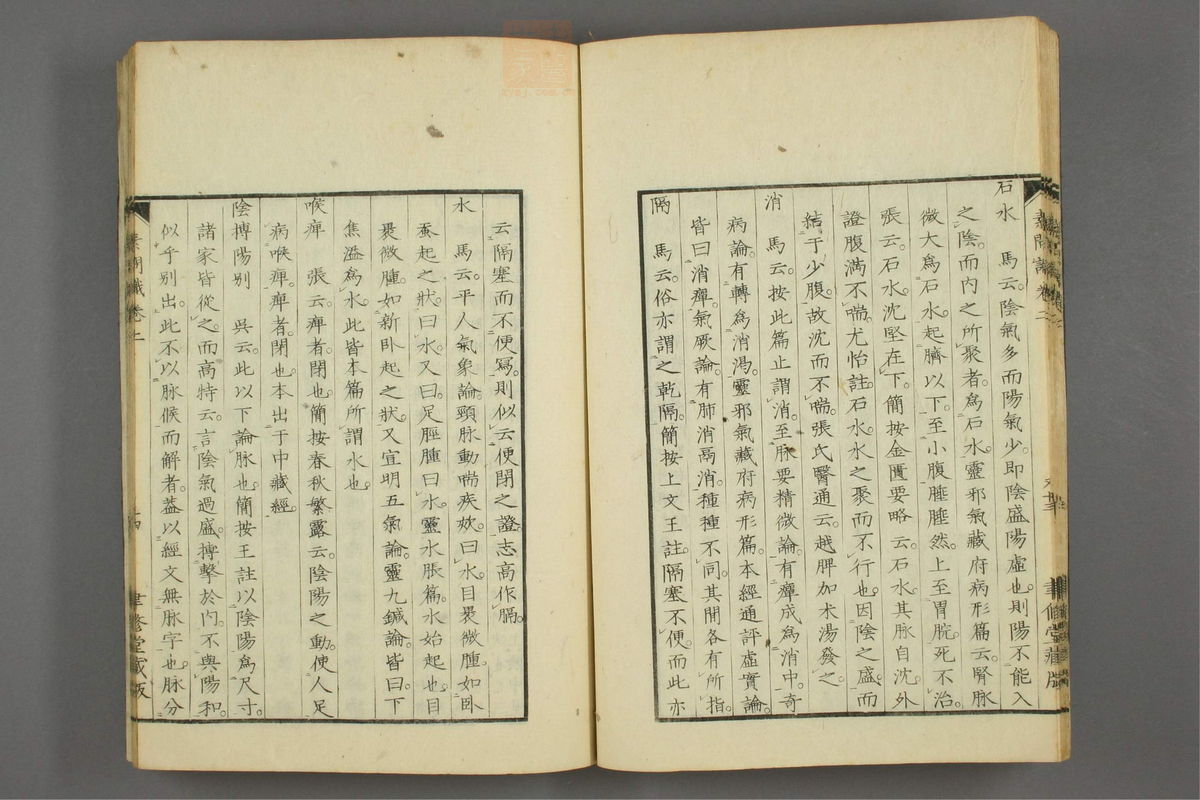 石水　馬云。陰氣多而陽氣少。即陰盛陽虛也。則陽不能入
之陰。而內之所聚者。爲石水。靈邪氣藏府病形篇云。腎脉
微大爲石水。起臍以下。至小腹腄腄然。上至胃脘。死不治。
張云。石水。沈堅在下。簡按金匱要略云。石水。其脉自沈。外
證腹滿不喘。尤怡註。石水。水之聚而不行也。因陰之盛。而
結于少腹。故沈而不喘。張氏醫通云。越脾加朮湯發之。
消　馬云。按此篇止謂消。至脉要精微論。有癉成爲消中。奇
病論。有轉爲消渴。靈邪氣藏府病形篇。本經通評虛實論。
皆曰消癉。氣厥論。有肺消鬲消。種種不同。其間各有所指。
隔　馬云。俗亦謂之乾隔。簡按上文王註。隔塞不便。而此亦
云隔塞而不便寫。則似云便閉之證。志高作膈。
水　馬云。平人氣象論。頸脉動喘疾欬。曰水。目裹微腫。如臥
蚕起之狀。曰水。又曰。足脛腫。曰水。靈水脹篇。水始起也。目
裹微腫。如新卧起之狀。又宣明五氣論。靈九鍼論。皆曰。下
焦溢爲水。此皆本篇所謂水也。
喉痺　張云。痺者。閉也。簡按春秋繁露云。陰陽之動。使人足
病喉痺。痺者。閉也。本出于中藏經。
陰搏陽別　吳云。此以下論脉也。簡按王註。以陰陽爲尺寸。
諸家皆從之。而高特云。言陰氣過盛。搏擊於內。不與陽和。
似乎別出。此不以脉候而解者。葢以經文無脉字也。脉分
素問識卷二
聿修堂藏版